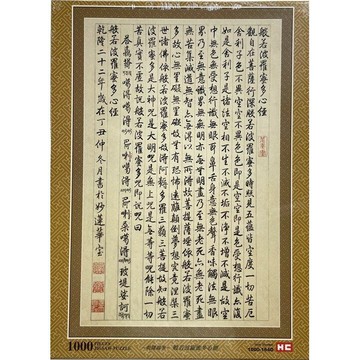 般若波羅蜜多心經
觀自在菩薩行深般若波羅蜜多時照見五蘊皆空度一切苦厄
舍利子色不異空空不異色色即是空空即是色受想行識亦復
如是舍利子是諸法空相不生不滅不垢不淨不增不減是故空
中無色無受想行識無眼耳鼻舌身意無色聲香味觸法無眼
界乃至無意識界無無明亦無無明盡乃至無老死亦無老死盡
無苦集滅道無智亦無得以無所得故菩提薩埵依般若波羅蜜
多故心無罣礙無罣礙故無有恐怖遠離顛倒夢想究竟涅槃三
世諸佛依般若波羅蜜多故得阿耨多羅三藐三菩提故知般若
波羅蜜多是大神咒是大明咒是無上咒是無等等咒能除一切
苦真實不虛故說般若波羅蜜多咒即說咒曰
般若波羅蜜多心經
乾隆二十二年歲在丁丑仲冬月書於妙蓮華室
1000
JIGSAW PUZZLE
HC